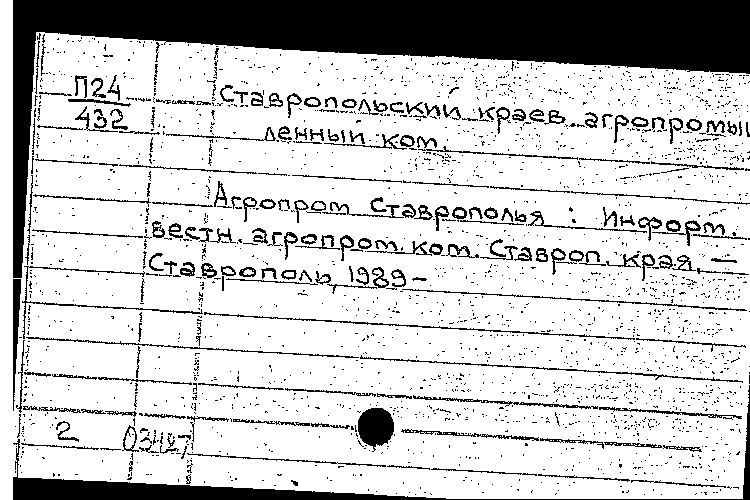 П24
432
Ставропольский краев. агропромыш
ленный ком.
Агропром Ставрополья : Информ.
вестн. агропром. ком. Ставроп. края. —
Ставрополь, 1989 –
2